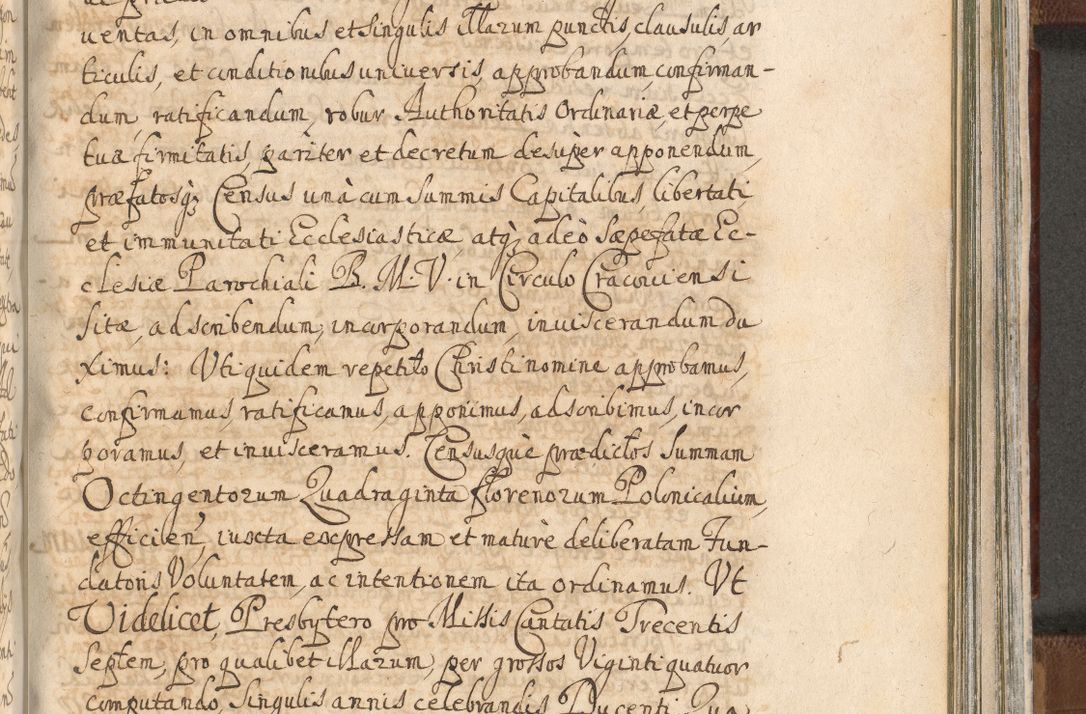 uentas, in omnibus et singulis illarum punctis, clausulis, ar
ticulis, et conditionibus uniuersis, approbandum, confirman-
dum, ratificandum, robur Authoritatis Ordinariæ et perpe
tuæ firmitatis, pariter et decretum desuper apponendum,
præfatosq3 Census unà cum Summis Capitalibus, libertati,
et immunitati Ecclesiasticæ, atq3 adeò Sæpefatæ Ec-
clesiæ Parochiali B. M. V. in Circulo Cracouiensi
sitæ, adscribendum, incorporandum, inuiscerandum du
ximus: Uti quidem repetito Christi nomine approbamus,
confirmamus, ratificamus, apponimus, adscribimus, incor
poramus, et inuisceramus. Censusquè prædictos Summam
Octingentorum Quadraginta florenorum Polonicalium,
efficien, iuxta expressam et maturè deliberatam Fun-
datoris Voluntatem, ac intentionem ita ordinamus. Ut
Videlicet, Presbytero pro Missis Cantatis Trecentis
Septem, pro qualibet illarum, per grossos Viginti quatuor
computando, Singulis annis celebrandis Ducenti Qua